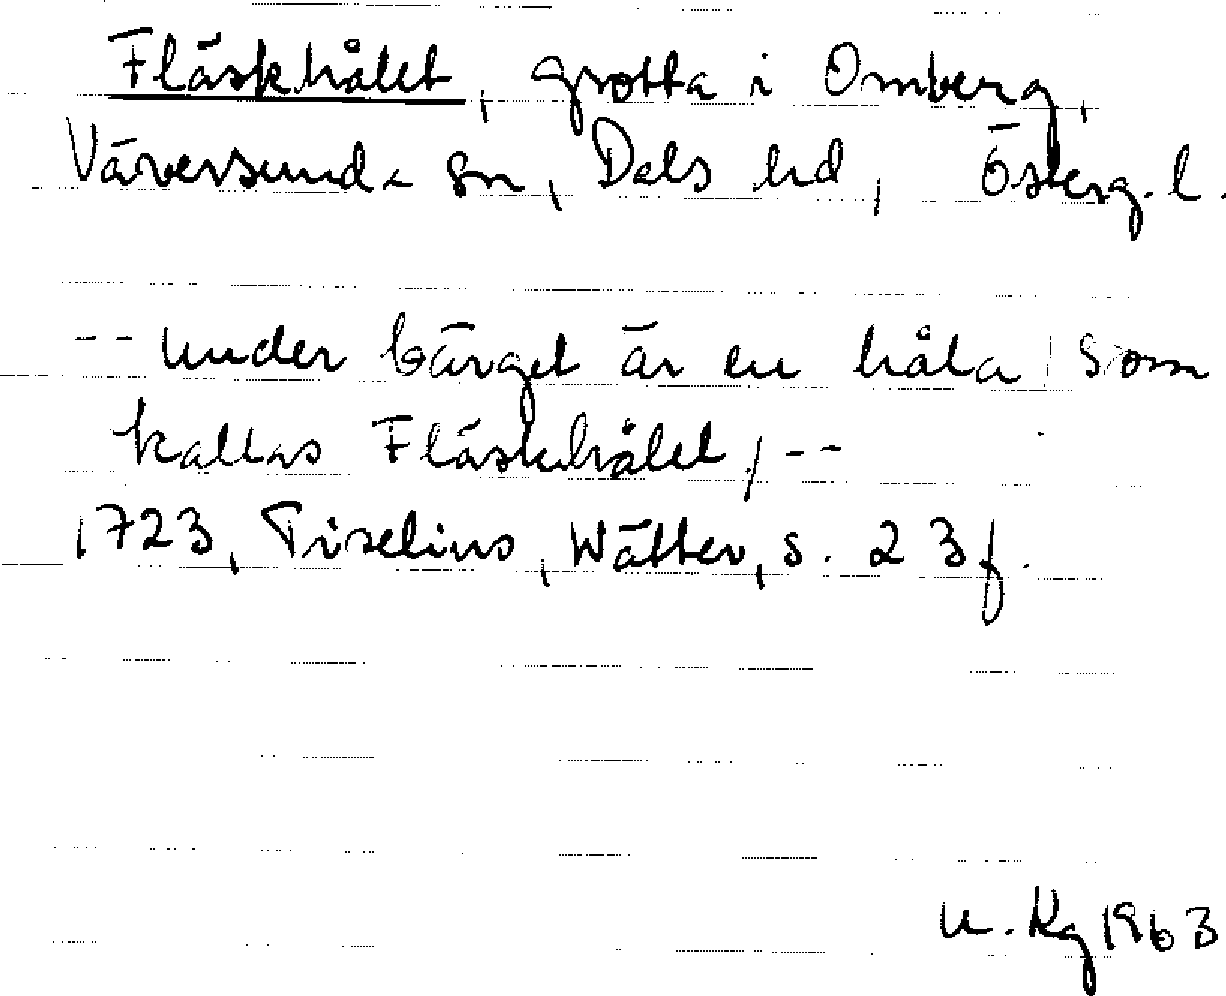 Fläskhålet, grotta i Omberg,
Väversunda sn, Dals hd, Österg. l.
-- under bärget är en håla som
kallas Fläskhålet, --
1723, Tiselius, Wätter, s. 23 f.
1963